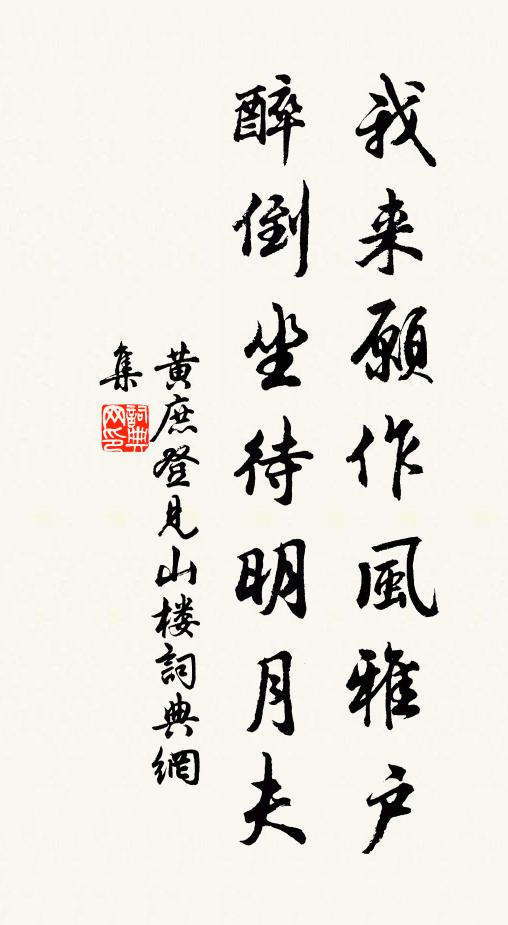 我来願作風雅户
醉倒坐待明月夫
黄庶登見山楼詞典網
集
詞典网印